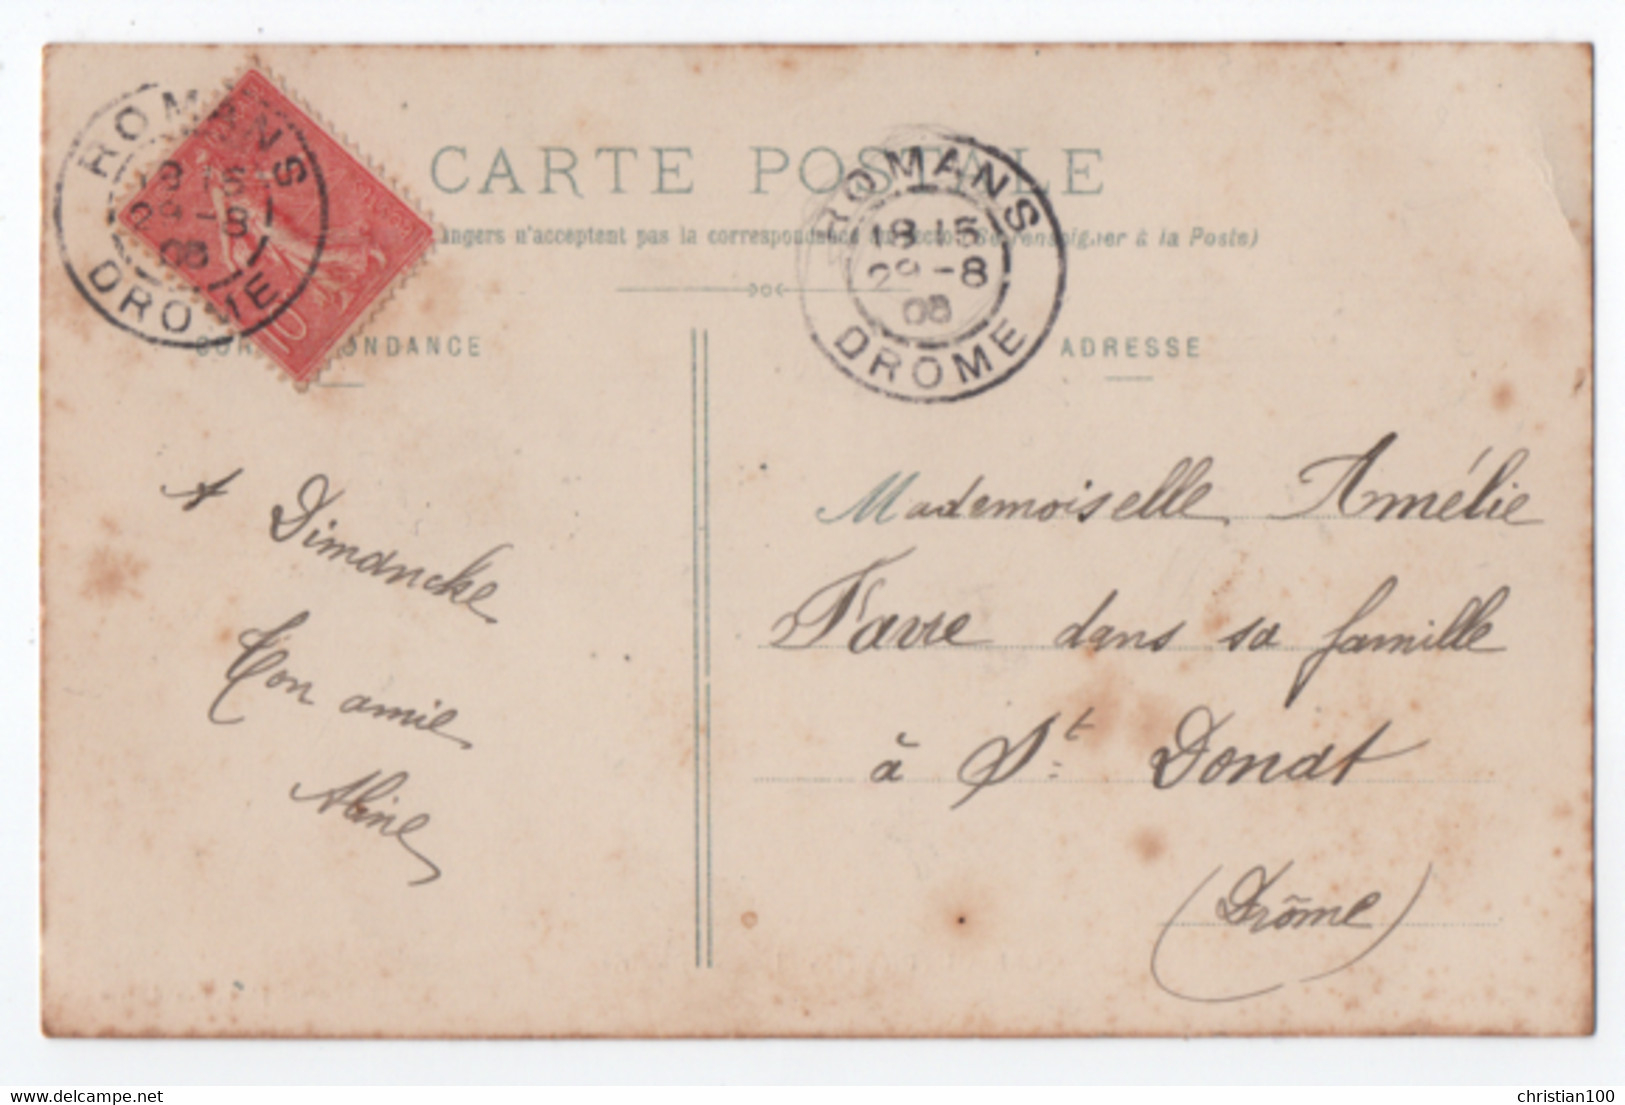 CARTE POSTALE
angers n'acceptent pas la correspondance au recto. Se renseigner à la Poste)
ROMANS
18 15
29-8
08
DROME
ROMANS
18 15
29-8
08
DROME
10
CORRESPONDANCE
ADRESSE
A Dimanche
Ton amie
Aline
Mademoiselle Amélie
Favre dans sa famille
à St Donat
(Drôme)
delcampe.net
christian100